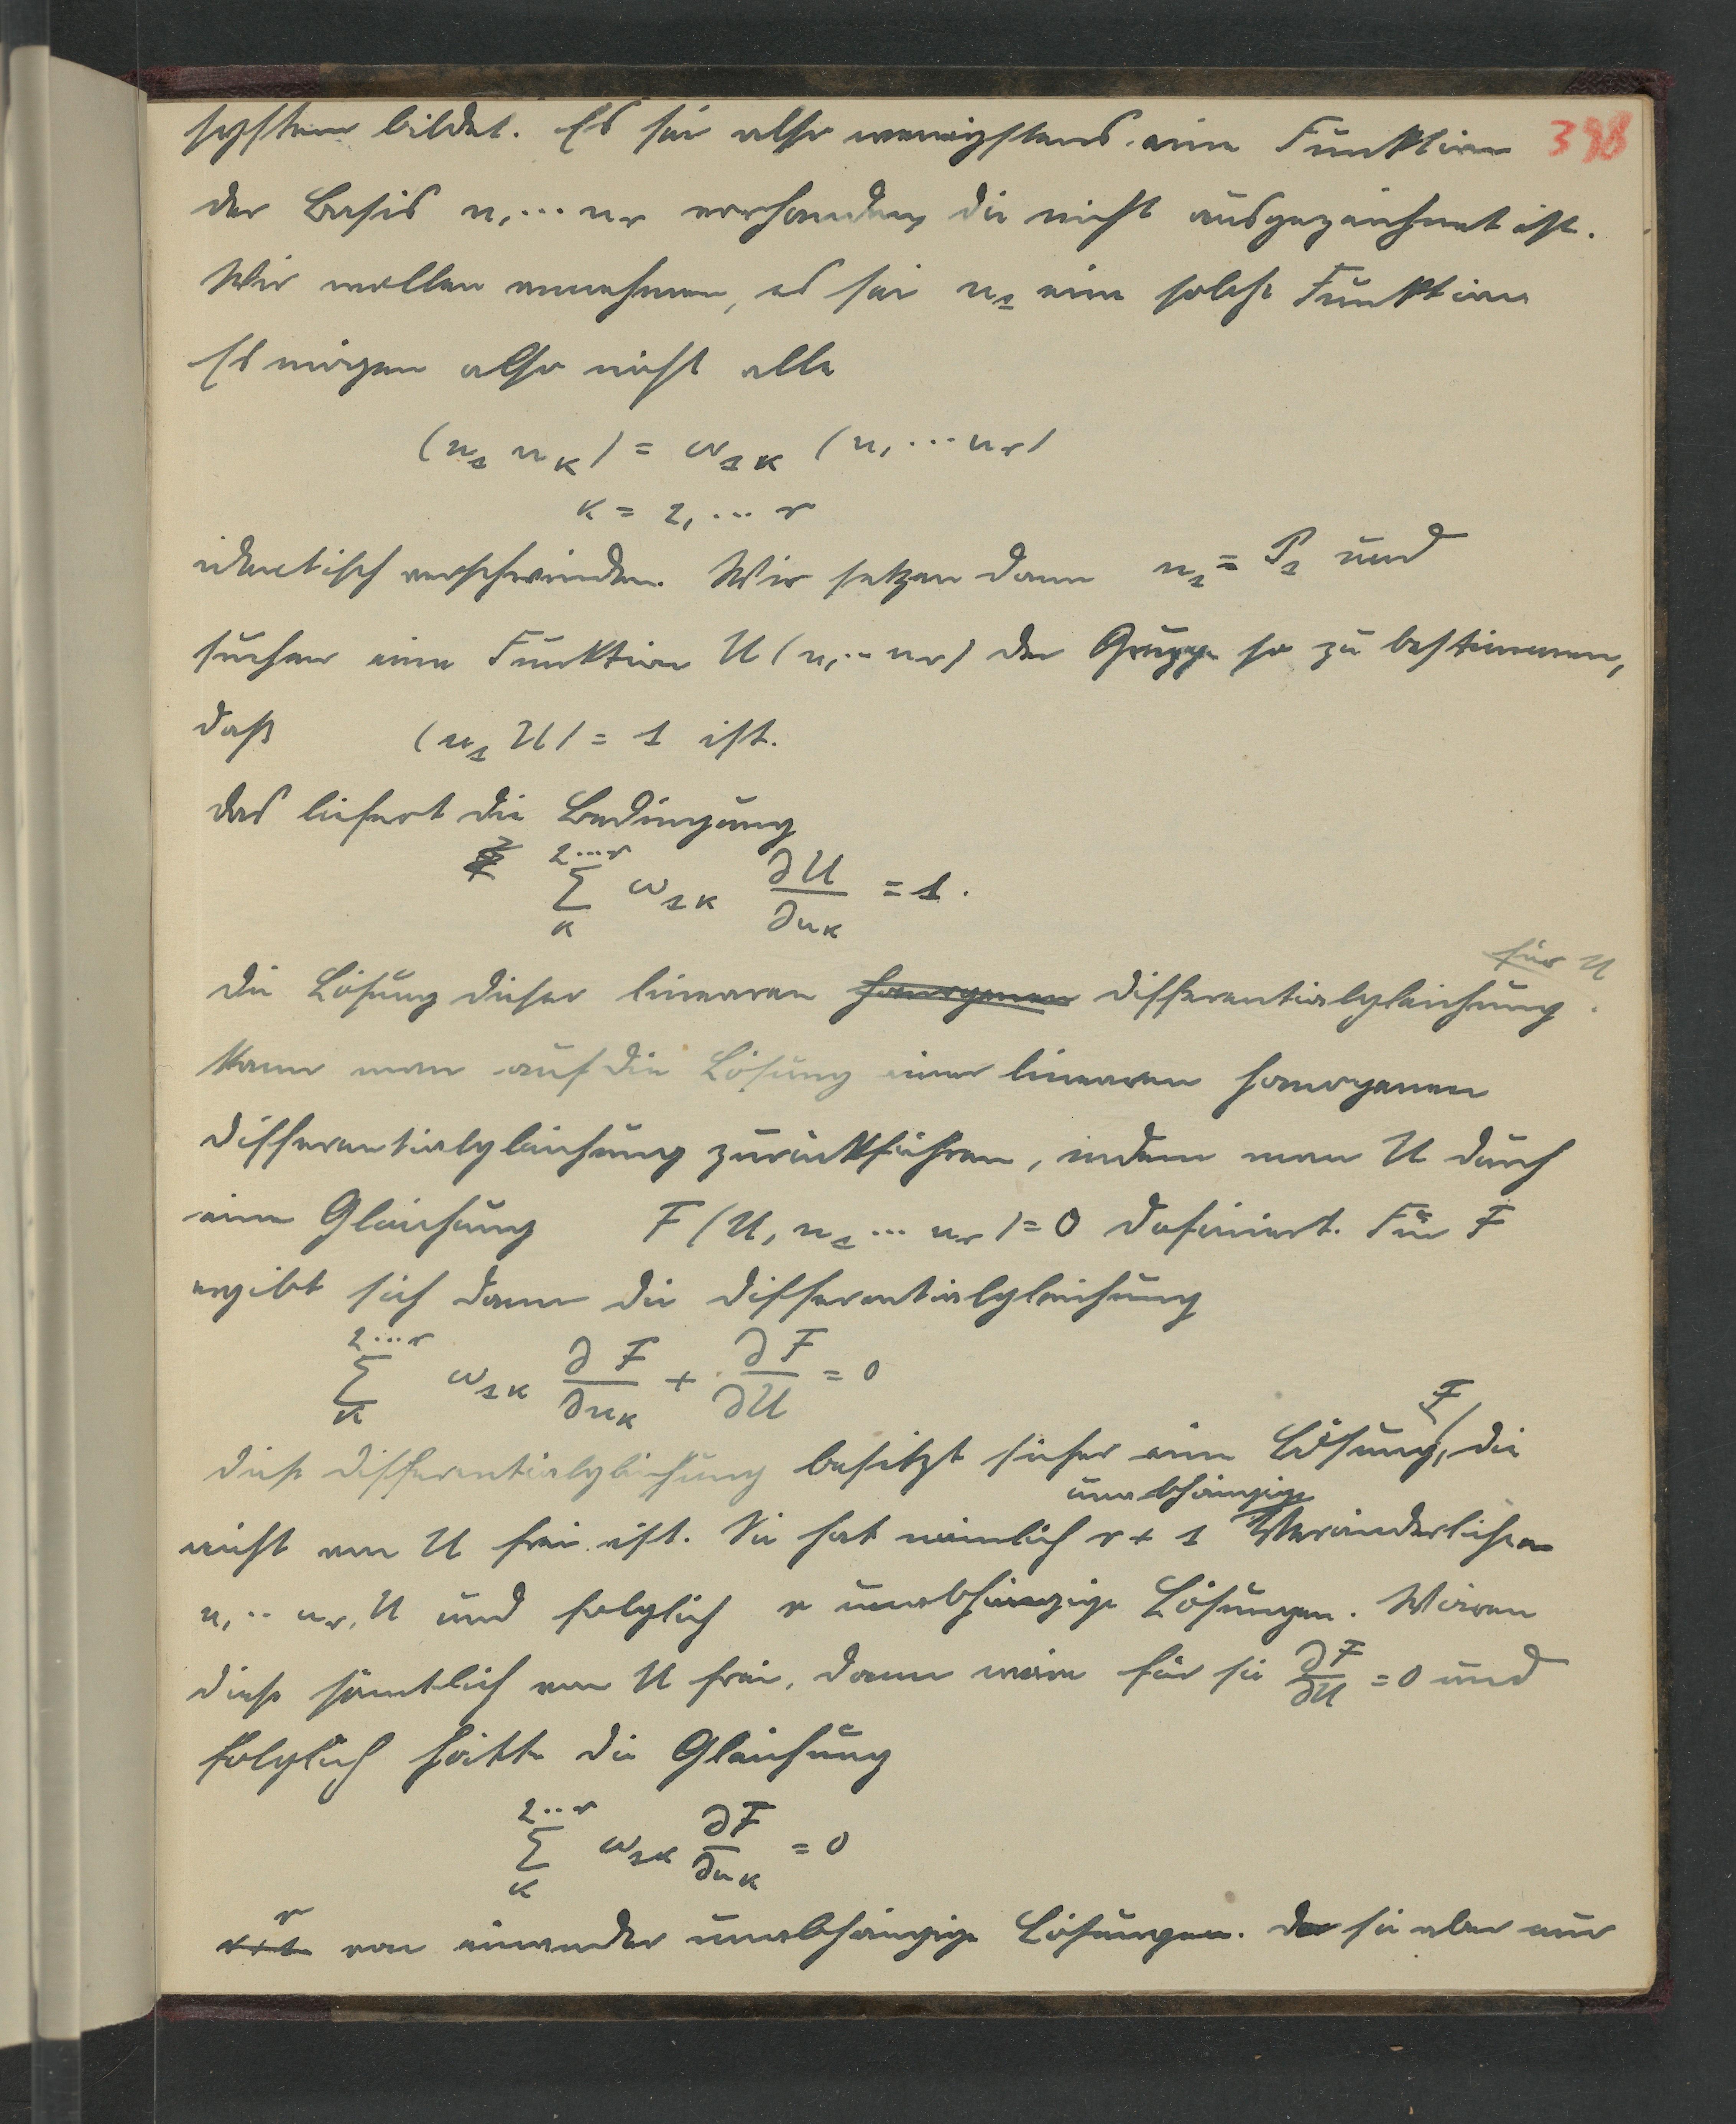 system bildet. Es sei also wenigstens eine Funktion 398
der Basis u₁...uᵣ vorhanden, die nicht ausgezeichnet ist.
Wir wollen annehmen, es sei u₁ eine solche Funktion
Es mögen also nicht alle
(u₁ u_κ) = ω₁κ (u₁...uᵣ)
κ = 2, ... r
identisch verschwinden. Wir setzen dann u₁ = P₁ und
suchen eine Funktion U(u₁..uᵣ) der Gruppe so zu bestimmen,
daß (u₁ U) = 1 ist.
Das liefert die Bedingung
∑_κ^{2...r} ω₁κ ∂U/∂u_κ = 1.
für U
Die Lösung dieser linearen homogenen Differentialgleichung.
kann man auf die Lösung einer linearen homogenen
Differentialgleichung zurückführen, indem man U durch
eine Gleichung F(U, u₁...uᵣ) = 0 definiert. Für F
ergibt sich dann die Differentialgleichung
∑_κ^{2...r} ω₁κ ∂F/∂u_κ + ∂F/∂U = 0
F
Diese Differentialgleichung besitzt sicher eine Lösung, die
unabhängige
nicht von U frei ist. Sie hat nämlich r+1 Veränderlichen
u₁..uᵣ, U und folglich r unabhängige Lösungen. Wären
diese sämtlich von U frei, dann wäre für sie ∂F/∂U = 0 und
folglich hätte die Gleichung
∑_κ^{2..r} ω₁κ ∂F/∂u_κ = 0
r
von einander unabhängige Lösungen. Da sie aber nur